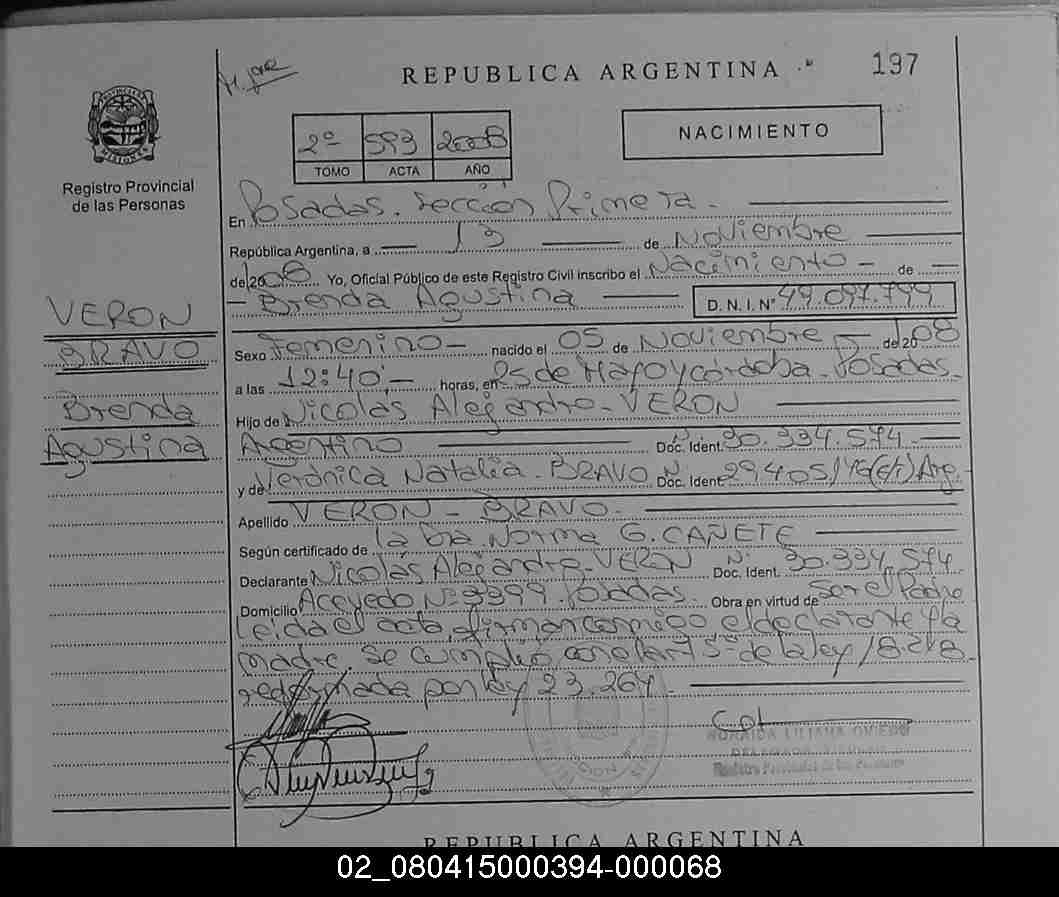 REPUBLICA ARGENTINA
197
NACIMIENTO
PROVINCIA DE
MISIONES
Registro Provincial
de las Personas
2º 593 2008
TOMO ACTA AÑO
En Posadas. Sección Primera.
República Argentina, a 13 de Noviembre
de 2008 Yo, Oficial Público de este Registro Civil inscribo el Nacimiento - de
- Brenda Agustina D. N. I. Nº 49.097.799
VERON
BRAVO
Brenda
Agustina
Sexo Femenino - nacido el 05 de Noviembre - de 2008
a las 12:40 - horas, en 25 de Mayo y Córdoba - Posadas.
Hijo de Nicolás Alejandro - VERON
Argentino Doc. Ident. Nº 30.334.574
y de Verónica Natalia - BRAVO Nº Doc. Ident. Arg.
Apellido VERON - BRAVO.
Según certificado de la Dra. Norma G. CAÑETE
Declarante Nicolás Alejandro - VERON Doc. Ident. Nº 30.334.574
Domicilio Acevedo Nº 3399. Posadas. Obra en virtud de Ser el Padre
Leída el acta, firman conmigo el declarante y la
madre. Se cumplió con el art 5º de la ley 18.248
reformada por ley 23.264
LILIANA OVIEDO
Registro Provincial de las Personas
REPUBLICA ARGENTINA
02_080415000394-000068